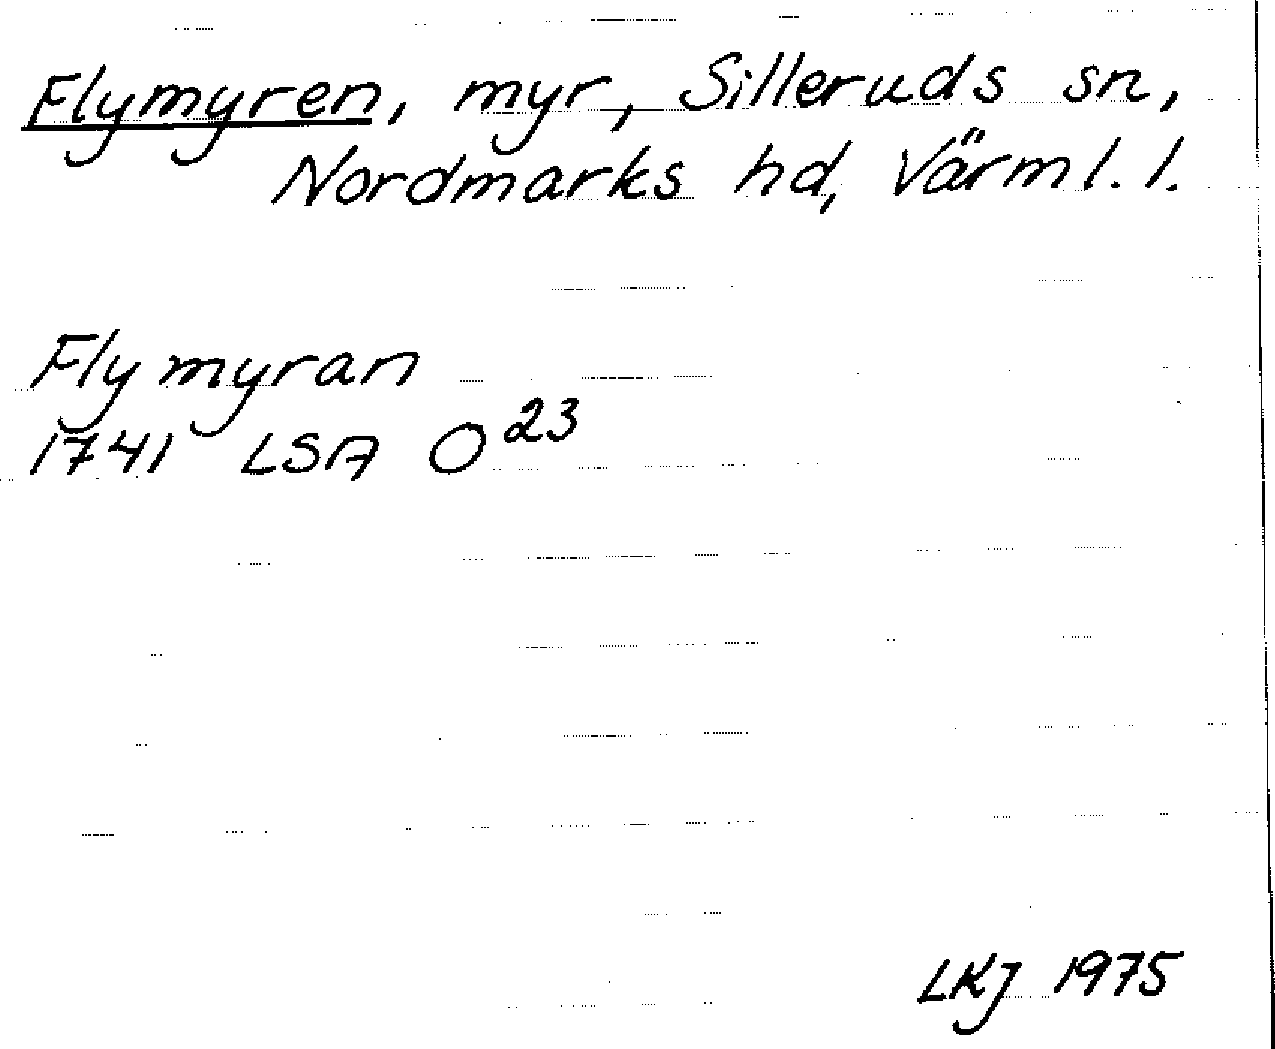 Flymyren, myr, Silleruds sn,
Nordmarks hd, Värml. l.
Flymyran
1741 LSA O 23
LKJ 1975